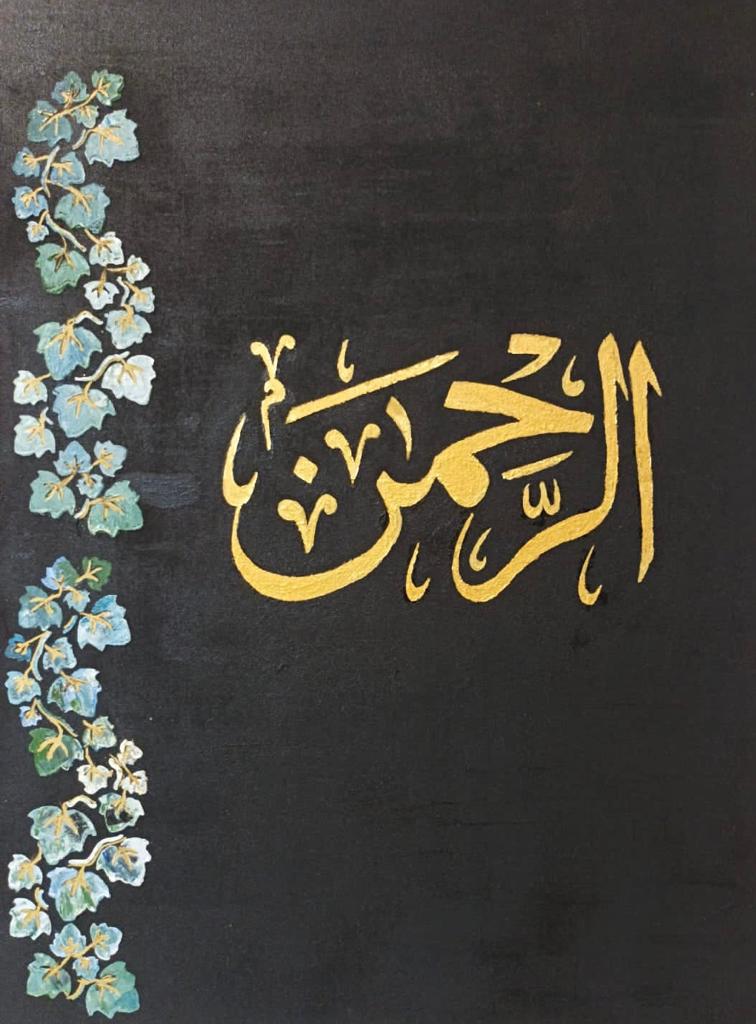 الرَّحْمٰن